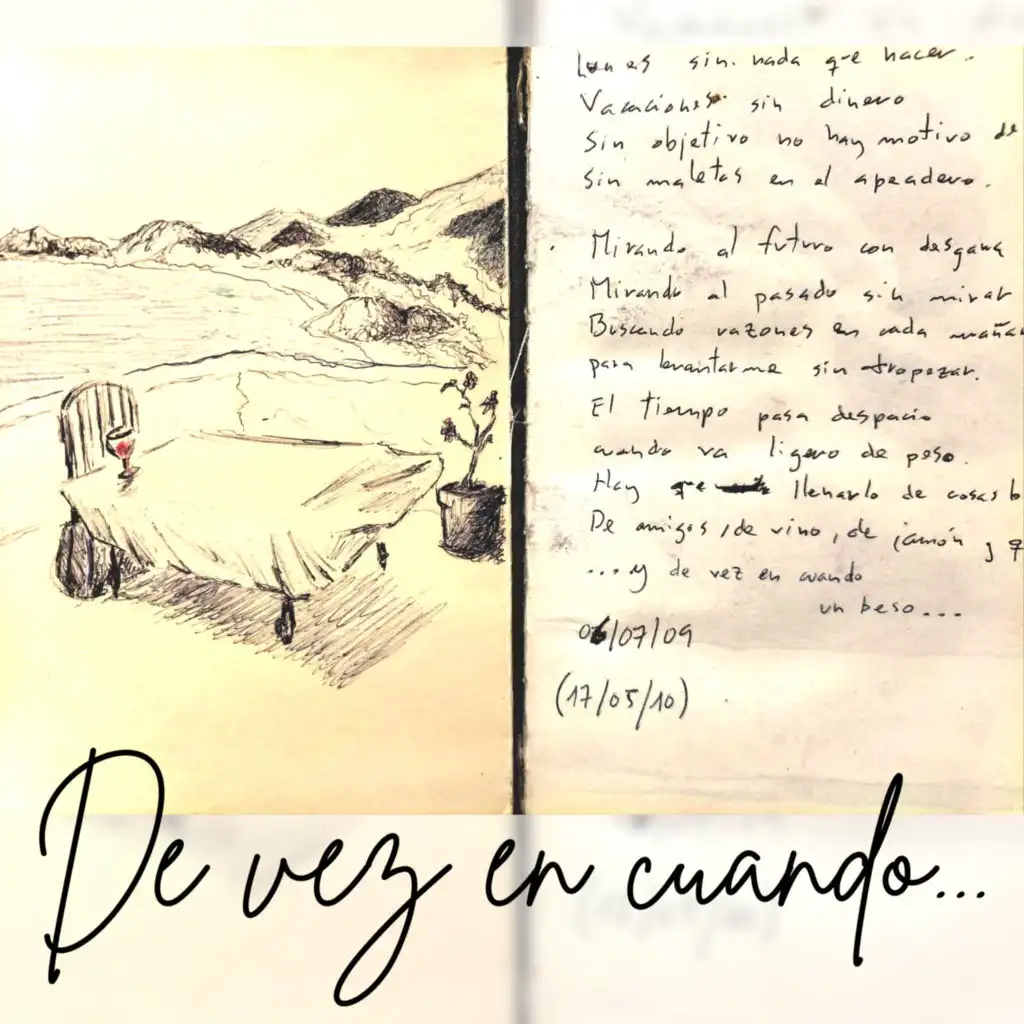 Lunes sin nada que hacer.
Vacaciones sin dinero
Sin objetivo no hay motivo de
Sin maletas en el apeadero.
Mirando al futuro con desgana
Mirando al pasado sin mirar
Buscando razones en cada maña
para levantarme sin tropezar.
El tiempo pasa despacio
cuando va ligero de peso.
Hay que llenarlo de cosas b
De amigos, de vino, de jamón y q
...y de vez en cuando
un beso...
06/07/09
(17/05/10)
De vez en cuando...